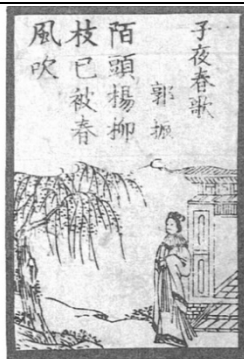 子夜春歌
郭振
陌頭楊柳
枝已被春
風吹